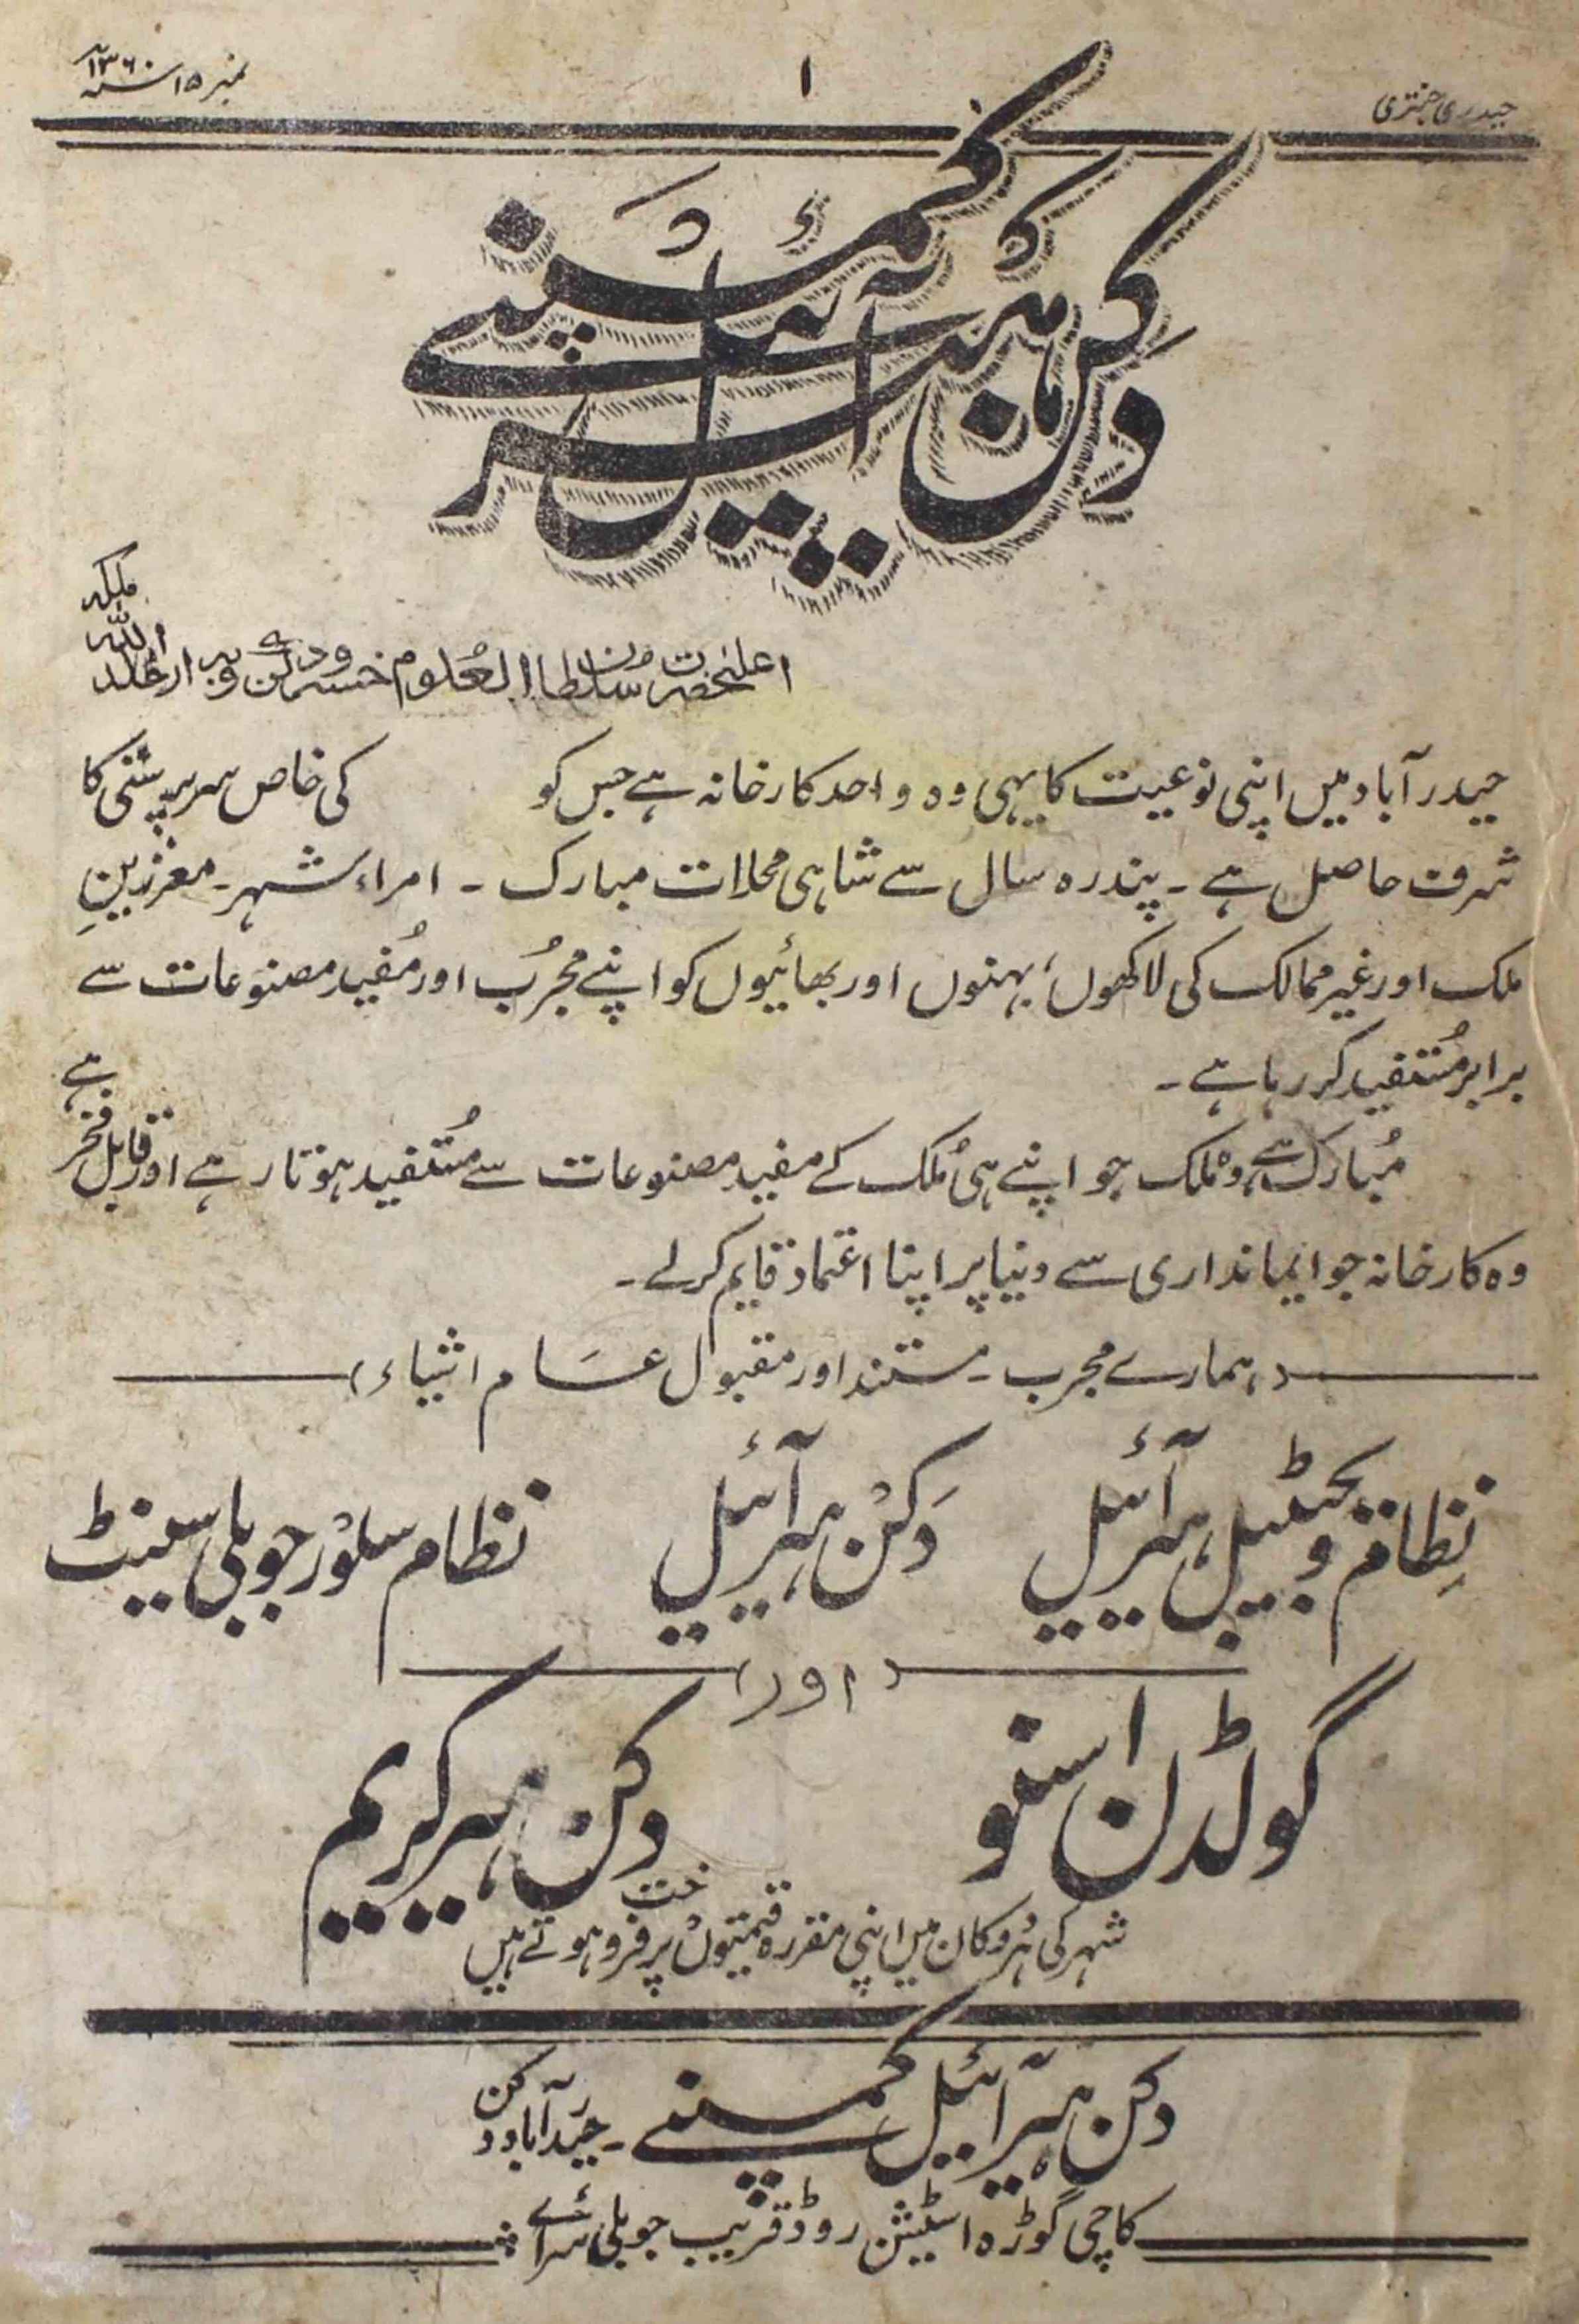 حیدری جنتری
۱
نمبر ۱۵ سنہ ۱۳۶۰
دکن ہیر آئیل کمپنی
اعلیٰحضرت سُلطان العُلوم خسرو دکن و برار خلد اللہ ملکہ
حیدرآباد میں اپنی نوعیت کا یہی وہ واحد کارخانہ ہے جس کو کی خاص سرپرستی کا
شرف حاصل ہے ۔ پندرہ سال سے شاہی محلات مبارک ۔ امراء شہر ۔ معززینِ
ملک اور غیر ممالک کی لاکھوں، بہنوں اور بھائیوں کو اپنے مجرُب اور مُفید مصنوعات سے
برابر مُستفید کر رہا ہے ۔
مُبارک ہے وہ مُلک جو اپنے ہی مُلک کے مفید مصنوعات سے مُستفید ہوتا رہے اور قابل فخر ہے
وہ کارخانہ جو ایمانداری سے دنیا پر اپنا اعتماد قایم کرلے ۔
(ہمارے مجرب ۔ مستند اور مقبول عام اشیاء)
نِظام ویجٹیبل ہیر آئیل دَکنْ ہیر آئیل نظام سلوْر جوبلی سینٹ
(اور)
گولڈن اسنو دکن ہیر کریم
شہر کی ہُر دکان میں اپنی مقررہ قیمتوں پر فروخت ہوتے ہیں
دکن ہیر آئیل کمپنی ۔ حیدرآباد دکن
کاچی گوڑہ اسٹیشن روڈ قریب جوبلی سرائے